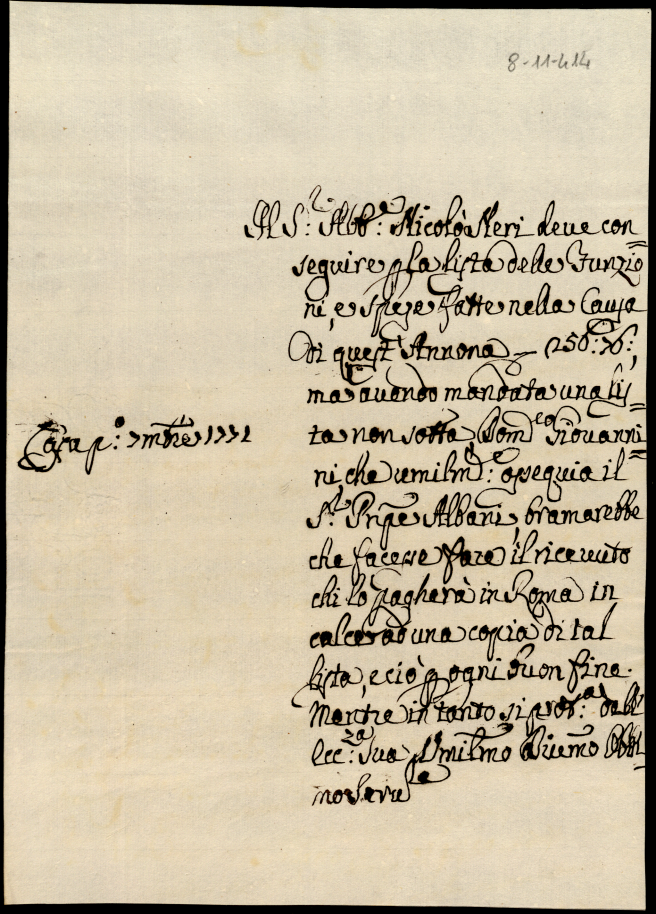 8-11-414
Al S.r Abb.e Nicolò Neri deve con=
seguire p la lista delle Funzio
ni, e speze fatte nella Causa
di quest'Annona — 250:76:,
ma avendo mandata una lis=
ta non sotta, Dom.co Giovanni=
ni, che umilm.te ossequia il
S.r Prīpe Albani, bramarebbe
che facesse fare il riceuuto
Casa p.o 7mbre 1771
chi lo pagherà in Roma in
calce ad una copia di tal
lista, e ciò p ogni buon fine.
Mentre in tanto si prot.a dell'
Ecc.za Sua Umilmo Diuemo Obbl=
mo Serv.re